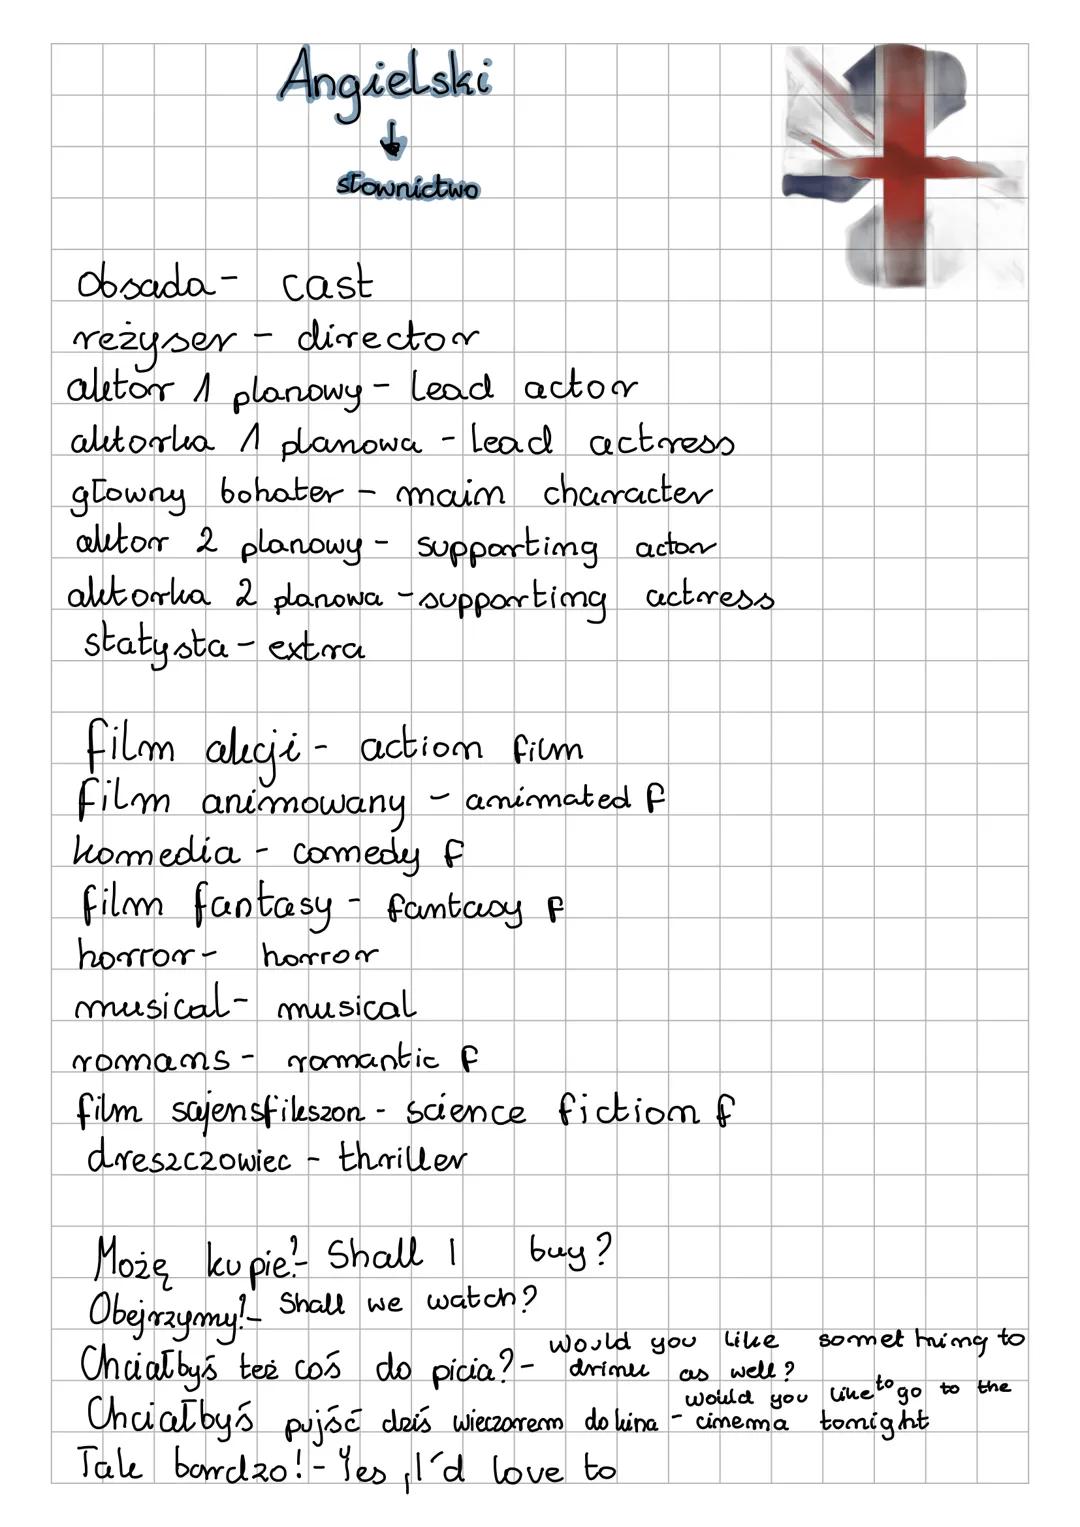 Angielski
↓
słownictwo
obsada - cast
reżyser - director
aktor 1 planowy - lead actor
aktorka 1 planowa - lead actress
główny bohater - main character
aktor 2 planowy - supporting actor
aktorka 2 planowa - supporting actress
statysta - extra
film akcji - action film
film animowany - animated f
komedia - comedy f
film fantasy - fantasy f
horror - horror
musical - musical
romans - romantic f
film sajensfikszon - science fiction f
dreszczowiec - thriller
Możę kupie? - Shall I buy?
Obejrzymy? - Shall we watch?
Chciałbyś też coś do picia? - would you like something to drink as well?
Chciałbyś pujść dziś wieczorem do kina - would you like to go to the cinema tonight
Tak bardzo! - Yes, I'd love to